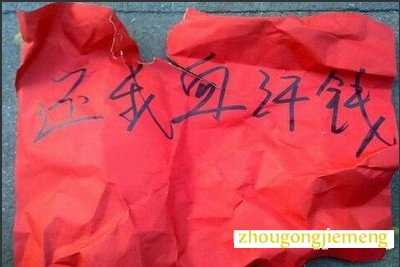 还我血汗钱
zhougongjiemeng